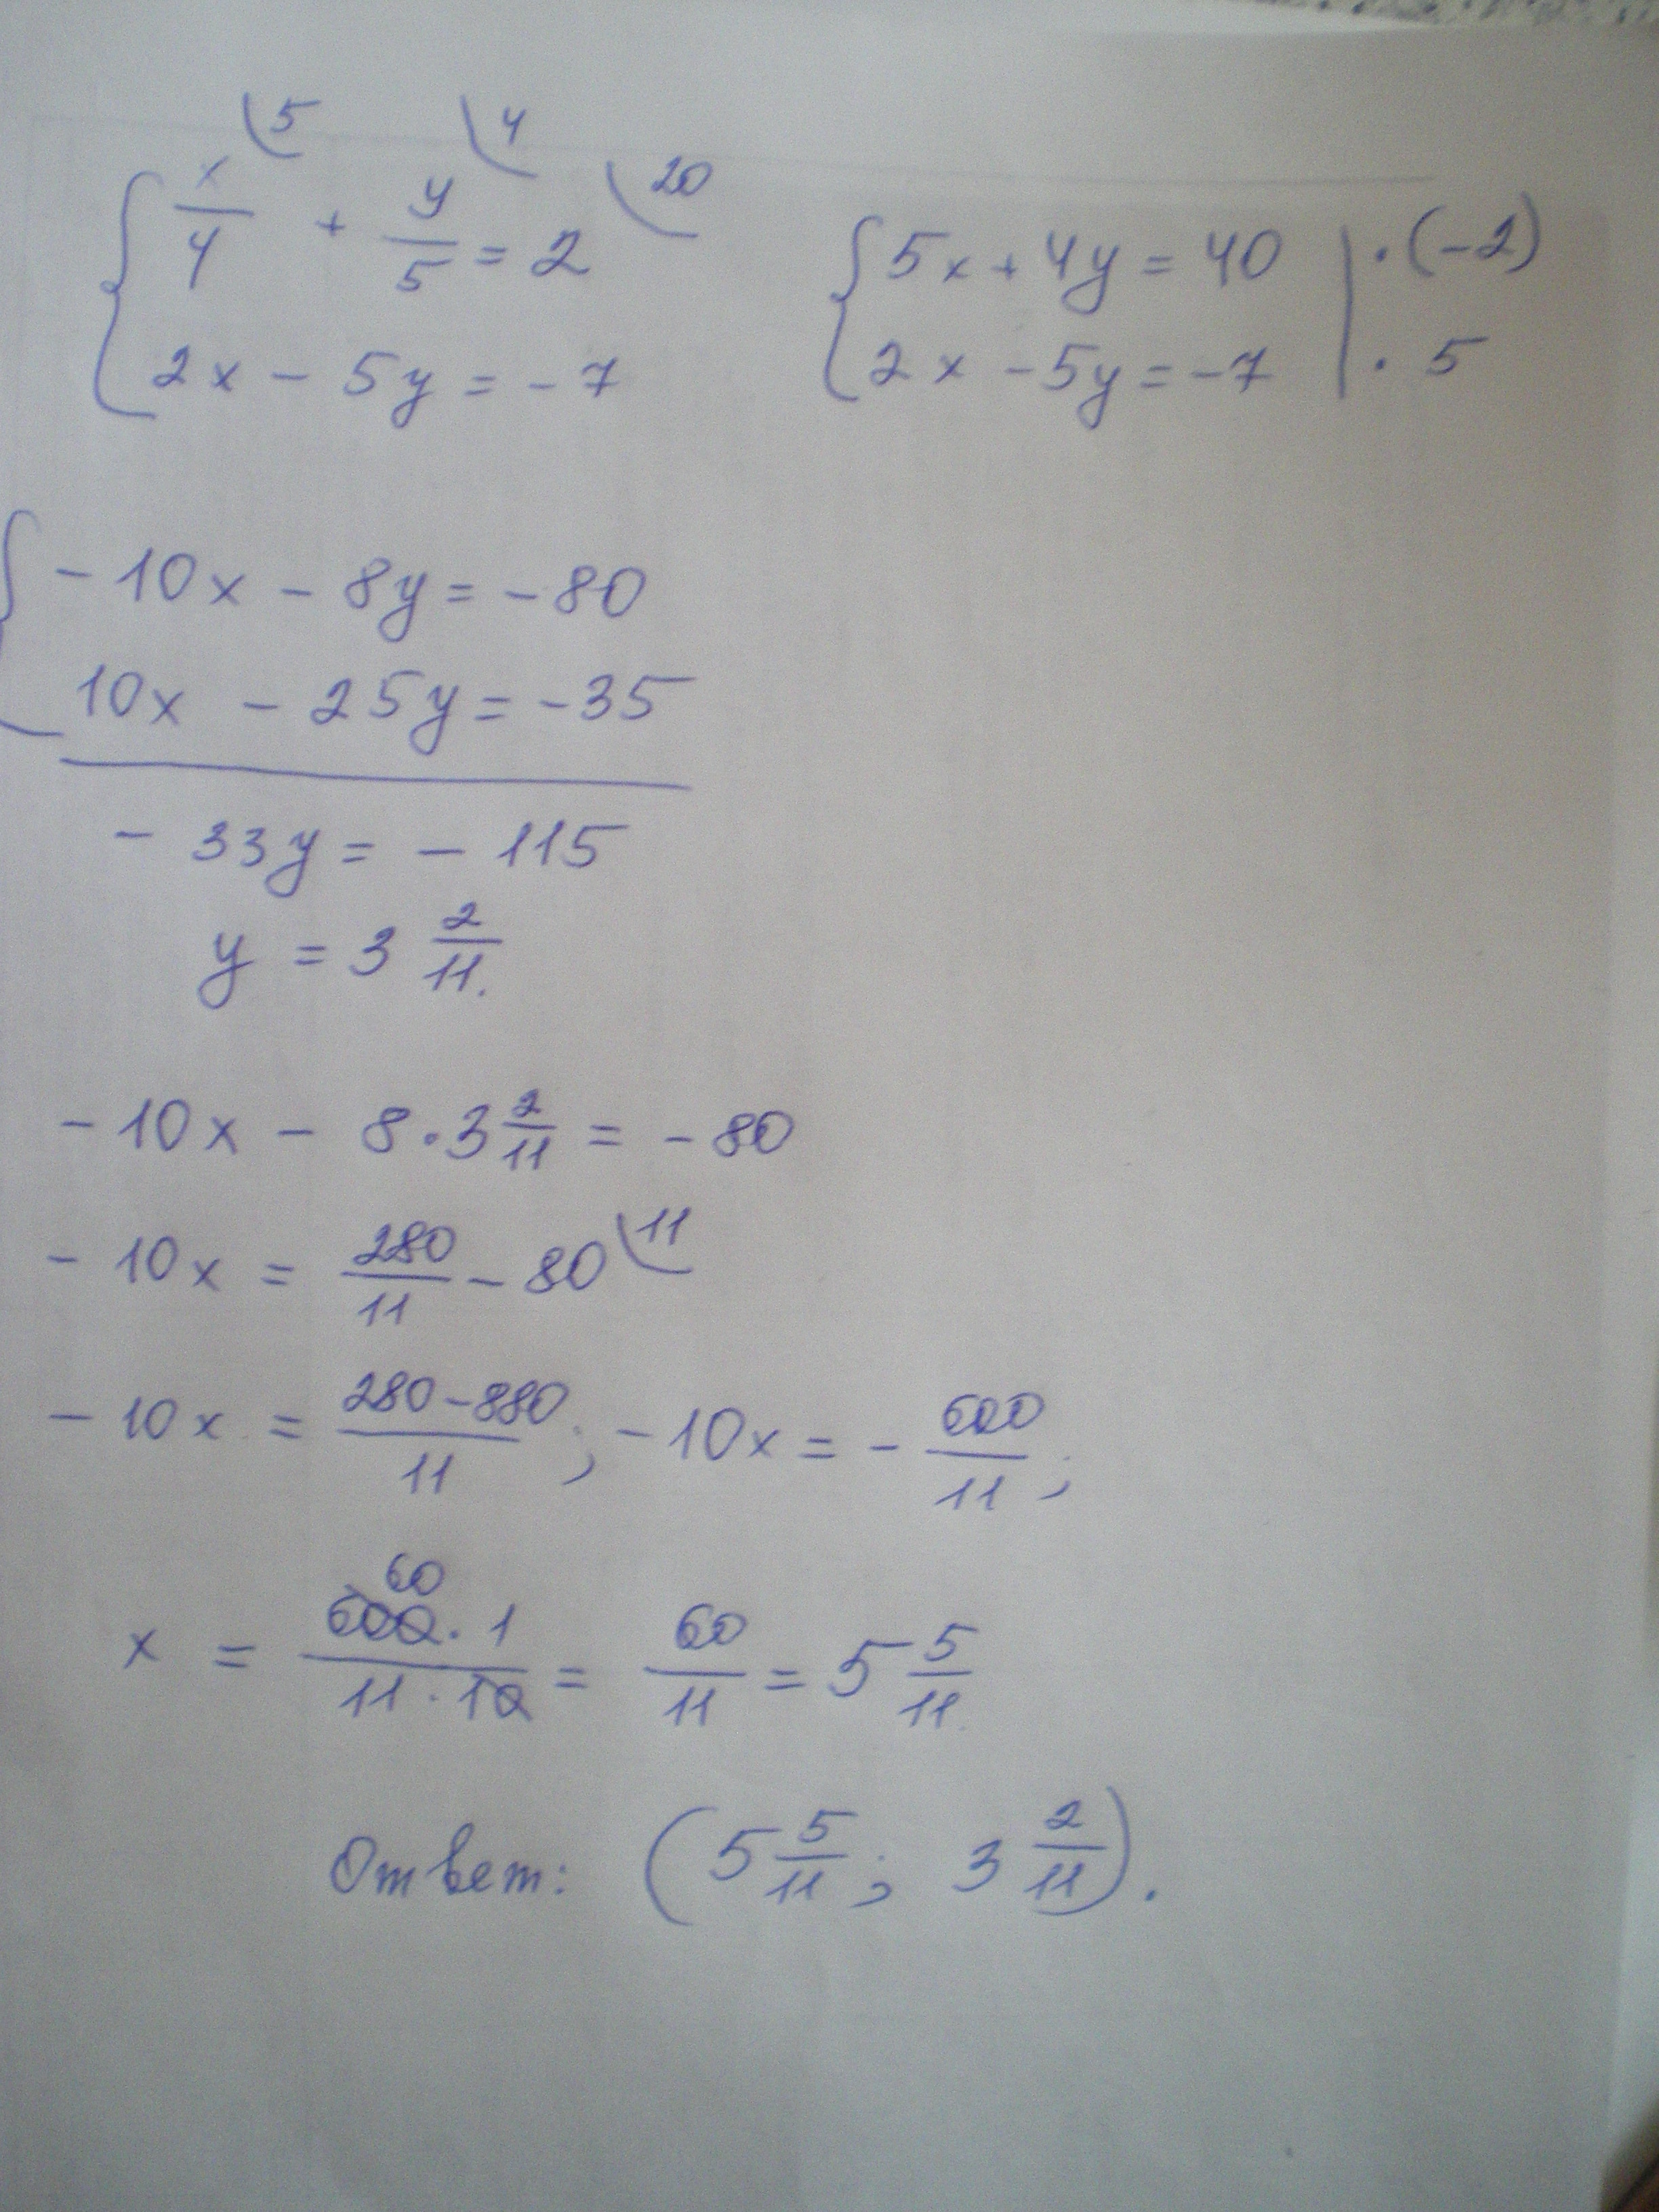 x/4 \5 + y/5 \4 = 2 \20
2x - 5y = -7
5x + 4y = 40 | · (-2)
2x - 5y = -7 | · 5
-10x - 8y = -80
10x - 25y = -35
- 33y = - 115
y = 3 2/11.
-10x - 8·3 2/11 = -80
-10x = 280/11 - 80 \11
-10x = 280-880/11 ; -10x = - 600/11 ;
x = 600·1/11·10 60 = 60/11 = 5 5/11
Ответ: (5 5/11; 3 2/11).